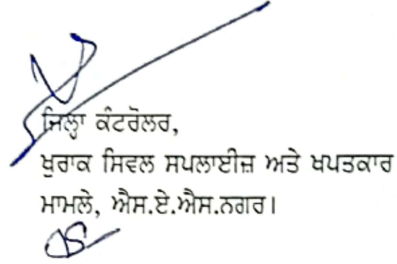 ਜਿਲ੍ਹਾ ਕੰਟਰੋਲਰ,
ਖੁਰਾਕ ਸਿਵਲ ਸਪਲਾਈਜ਼ ਅਤੇ ਖਪਤਕਾਰ
ਮਾਮਲੇ, ਐਸ.ਏ.ਐਸ.ਨਗਰ।